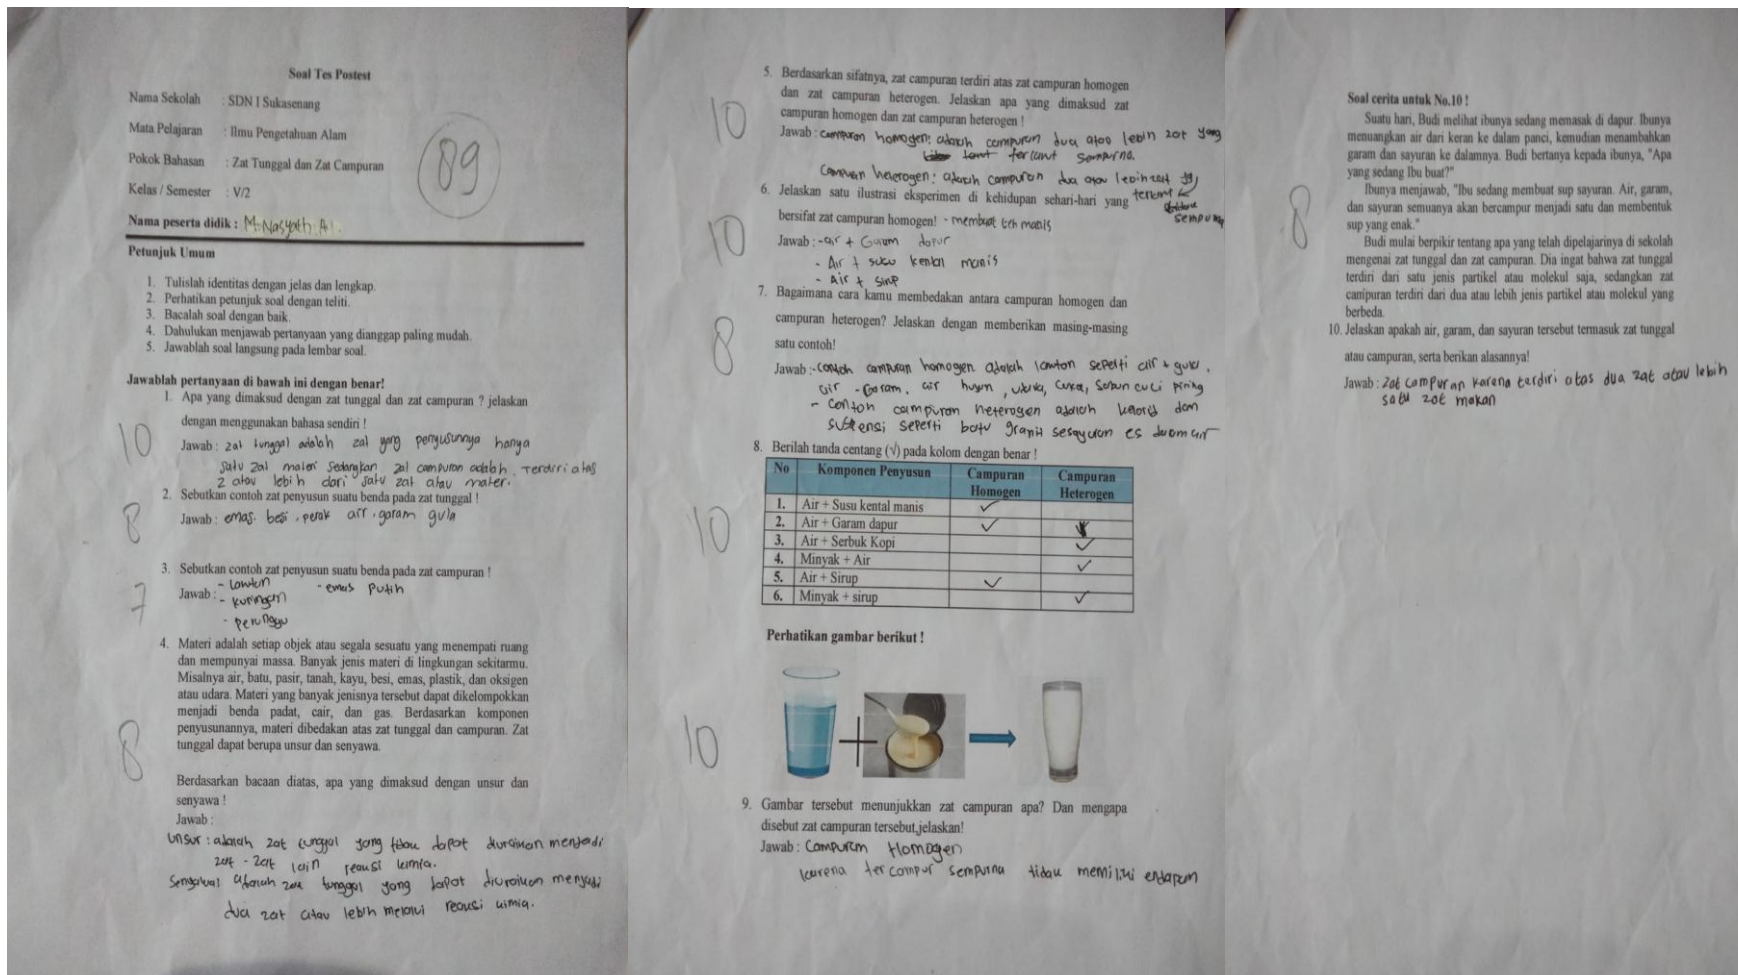 Soal Tes Postest
Nama Sekolah : SDN I Sukasenang
Mata Pelajaran : Ilmu Pengetahuan Alam
Pokok Bahasan : Zat Tunggal dan Zat Campuran
Kelas / Semester : V/2
89
Nama peserta didik : M. Nasyath. A.
Petunjuk Umum
1. Tulislah identitas dengan jelas dan lengkap.
2. Perhatikan petunjuk soal dengan teliti.
3. Bacalah soal dengan baik.
4. Dahulukan menjawab pertanyaan yang dianggap paling mudah.
5. Jawablah soal langsung pada lembar soal.
Jawablah pertanyaan di bawah ini dengan benar!
1. Apa yang dimaksud dengan zat tunggal dan zat campuran ? jelaskan
dengan menggunakan bahasa sendiri !
10
Jawab : zat tunggal adalah zat yang penyusunnya hanya
satu zat materi sedangkan zat campuran adalah. Terdiri atas
2 atau lebih dari satu zat atau materi.
2. Sebutkan contoh zat penyusun suatu benda pada zat tunggal !
8
Jawab : emas. besi, perak air, garam gula
3. Sebutkan contoh zat penyusun suatu benda pada zat campuran !
7
Jawab : - larutan - emas putih
- kuningan
- perunggu
4. Materi adalah setiap objek atau segala sesuatu yang menempati ruang
dan mempunyai massa. Banyak jenis materi di lingkungan sekitarmu.
Misalnya air, batu, pasir, tanah, kayu, besi, emas, plastik, dan oksigen
atau udara. Materi yang banyak jenisnya tersebut dapat dikelompokkan
menjadi benda padat, cair, dan gas. Berdasarkan komponen
penyusunannya, materi dibedakan atas zat tunggal dan campuran. Zat
tunggal dapat berupa unsur dan senyawa.
8
Berdasarkan bacaan diatas, apa yang dimaksud dengan unsur dan
senyawa !
Jawab :
Unsur : adalah zat tunggal yang tidak dapat diuraikan menjadi
zat - zat lain reaksi kimia.
adalah zat tunggal yang dapat diuraikan menjadi
dua zat atau lebih melalui reaksi kimia.
5. Berdasarkan sifatnya, zat campuran terdiri atas zat campuran homogen
dan zat campuran heterogen. Jelaskan apa yang dimaksud zat
campuran homogen dan zat campuran heterogen !
10
Jawab : campuran homogen: adalah campuran dua atau lebih zat yang
terlarut sempurna.
Campuran heterogen: adalah campuran dua atau lebih zat yg
terlarut
sempurna
6. Jelaskan satu ilustrasi eksperimen di kehidupan sehari-hari yang
bersifat zat campuran homogen! - membuat teh manis
10
Jawab : - air + Garam dapur
- Air + susu kental manis
- Air + sirup
7. Bagaimana cara kamu membedakan antara campuran homogen dan
campuran heterogen? Jelaskan dengan memberikan masing-masing
satu contoh!
8
Jawab : - contoh campuran homogen adalah larutan seperti air + gula,
air - Garam. air hujan, cuka, sabun cuci piring
- contoh campuran heterogen adalah koloid dan
suspensi seperti batu granit
8. Berilah tanda centang (√) pada kolom dengan benar !
10
No Komponen Penyusun Campuran Homogen Campuran Heterogen
1. Air + Susu kental manis ✓
2. Air + Garam dapur ✓
3. Air + Serbuk Kopi ✓
4. Minyak + Air ✓
5. Air + Sirup ✓
6. Minyak + sirup ✓
Perhatikan gambar berikut !
10
9. Gambar tersebut menunjukkan zat campuran apa? Dan mengapa
disebut zat campuran tersebut,jelaskan!
Jawab : Campuran Homogen
karena tercampur sempurna tidak memiliki endapan
Soal cerita untuk No.10 !
Suatu hari, Budi melihat ibunya sedang memasak di dapur. Ibunya
menuangkan air dari keran ke dalam panci, kemudian menambahkan
garam dan sayuran ke dalamnya. Budi bertanya kepada ibunya, "Apa
yang sedang Ibu buat?"
8
Ibunya menjawab, "Ibu sedang membuat sup sayuran. Air, garam,
dan sayuran semuanya akan bercampur menjadi satu dan membentuk
sup yang enak."
Budi mulai berpikir tentang apa yang telah dipelajarinya di sekolah
mengenai zat tunggal dan zat campuran. Dia ingat bahwa zat tunggal
terdiri dari satu jenis partikel atau molekul saja, sedangkan zat
campuran terdiri dari dua atau lebih jenis partikel atau molekul yang
berbeda.
10. Jelaskan apakah air, garam, dan sayuran tersebut termasuk zat tunggal
atau campuran, serta berikan alasannya!
Jawab : Zat campuran karena terdiri atas dua zat atau lebih
satu zat makan